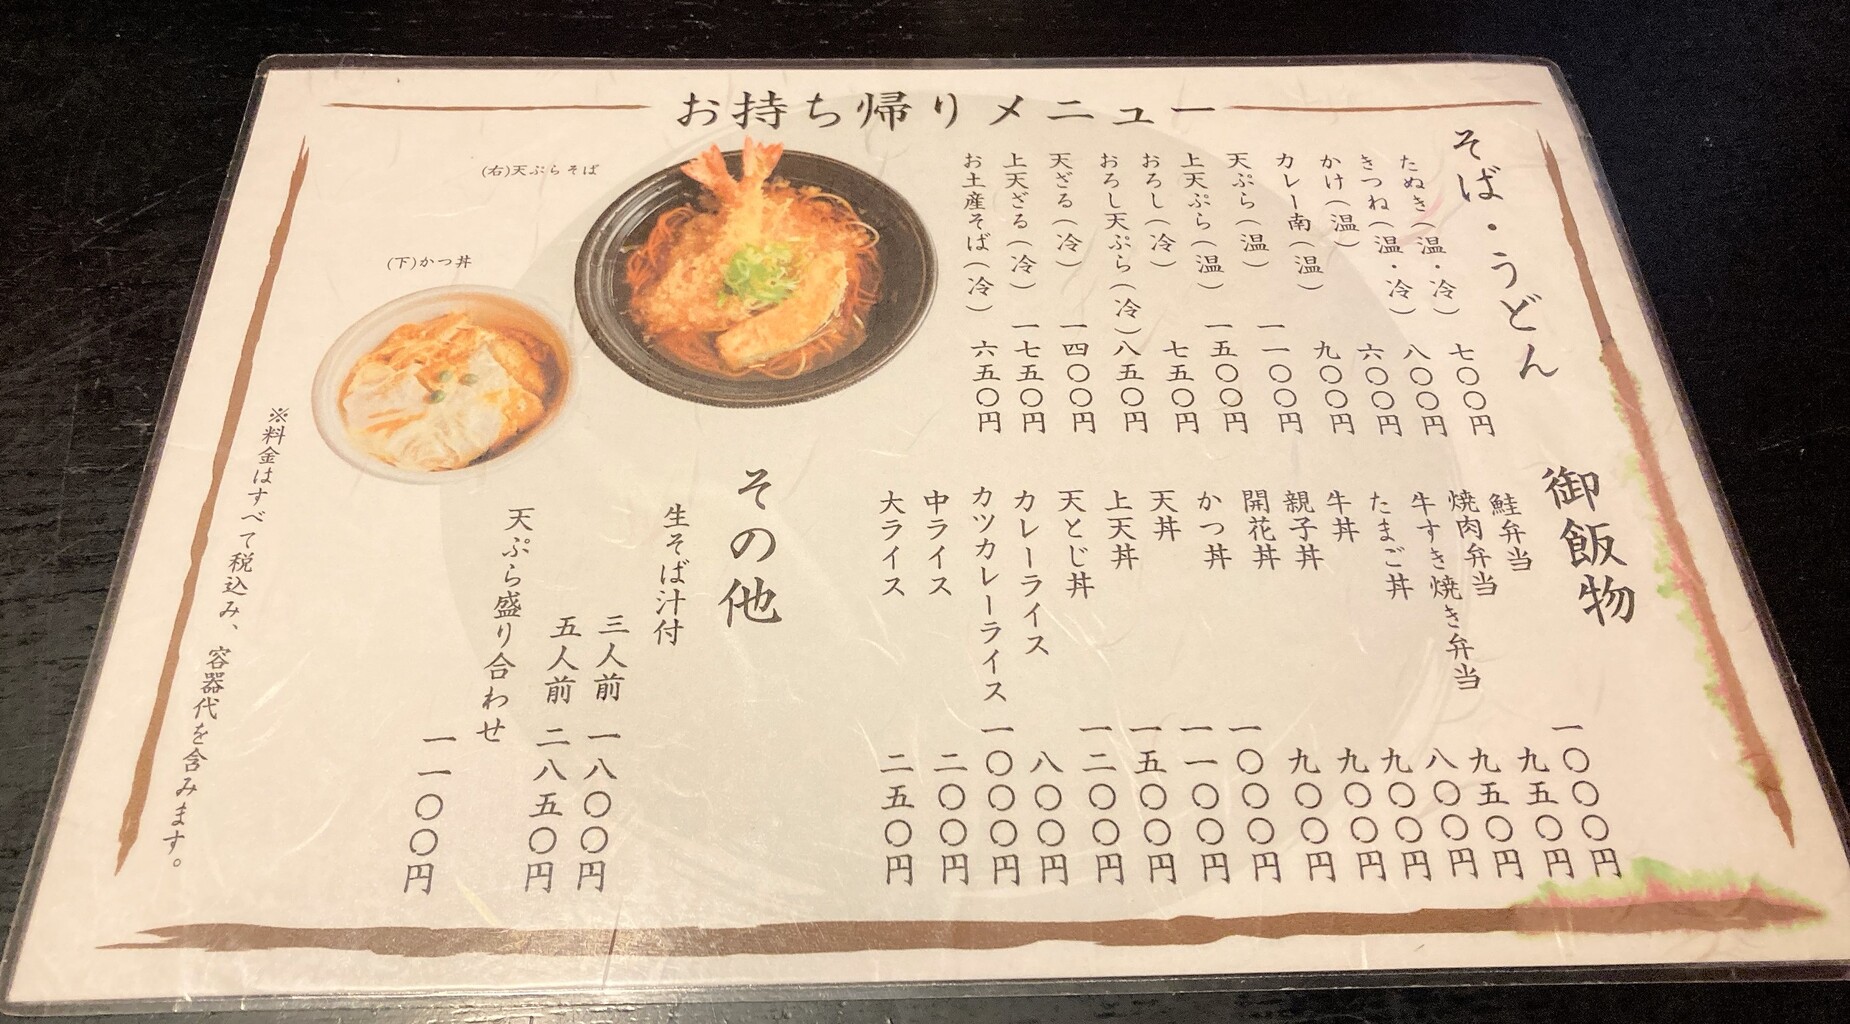 お持ち帰りメニュー
そば・うどん
たぬき(温・冷) 七〇〇円
きつね(温・冷) 八〇〇円
かけ(温) 六〇〇円
カレー南(温) 九〇〇円
天ぷら(温) 一一〇〇円
上天ぷら(温) 一五〇〇円
おろし(冷) 七五〇円
おろし天ぷら(冷) 八五〇円
天ざる(冷) 一四〇〇円
上天ざる(冷) 一七五〇円
お土産そば(冷) 六五〇円
(右)天ぷらそば
(下)かつ丼
御飯物
鮭弁当 一〇〇〇円
焼肉弁当 九五〇円
牛すき焼き弁当 九五〇円
たまご丼 八〇〇円
牛丼 九〇〇円
親子丼 九〇〇円
開花丼 九〇〇円
かつ丼 一〇〇〇円
天丼 一一〇〇円
上天丼 一五〇〇円
天とじ丼 一二〇〇円
カレーライス 八〇〇円
カツカレーライス 一〇〇〇円
中ライス 二〇〇円
大ライス 二五〇円
その他
生そば汁付
三人前 一八〇〇円
五人前 二八五〇円
天ぷら盛り合わせ
一一〇〇円
※料金はすべて税込み、容器代を含みます。